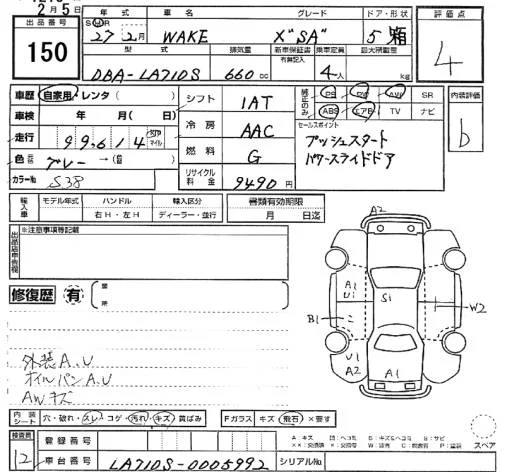 2月5日
出品番号
150
年式 車名 グレード ドア・形状
S H R
27年2月 WAKE X"SA" 5 箱
型式 排気量 新車保証書 乗車定員 最大積載量
有無記入
DBA-LA710S 660cc 4人 kg
評価点
4
車歴 自家用・レンタ( )
車検 年 月( 日)
走行 99,614 マイル
色 グレー →( )
カラーNo S38
シフト IAT
冷房 AAC
燃料 G
リサイクル料金 9490円
純正のみ
PS PW AW SR
ABS エアB TV ナビ
セールスポイント
プッシュスタート
パワースライドドア
内装評価
b
輸入車
モデル年式 ハンドル 輸入区分
右H・左H ディーラー・並行
書類有効期限
月 日迄
出品店申告欄
※注意事項等記載
修復歴 有
箇所
外装A.U
オイルパンA.U
AWキズ
A2
A1
U1
S1
B1
W2
U1
A2
A1
内装シート
穴・破れ・スレ・コゲ・汚れ・キズ・黄ばみ
Fガラス キズ・飛石・×要す
検査員
12
登録番号
車台番号 LA710S-0005992
シリアルNo
スペア